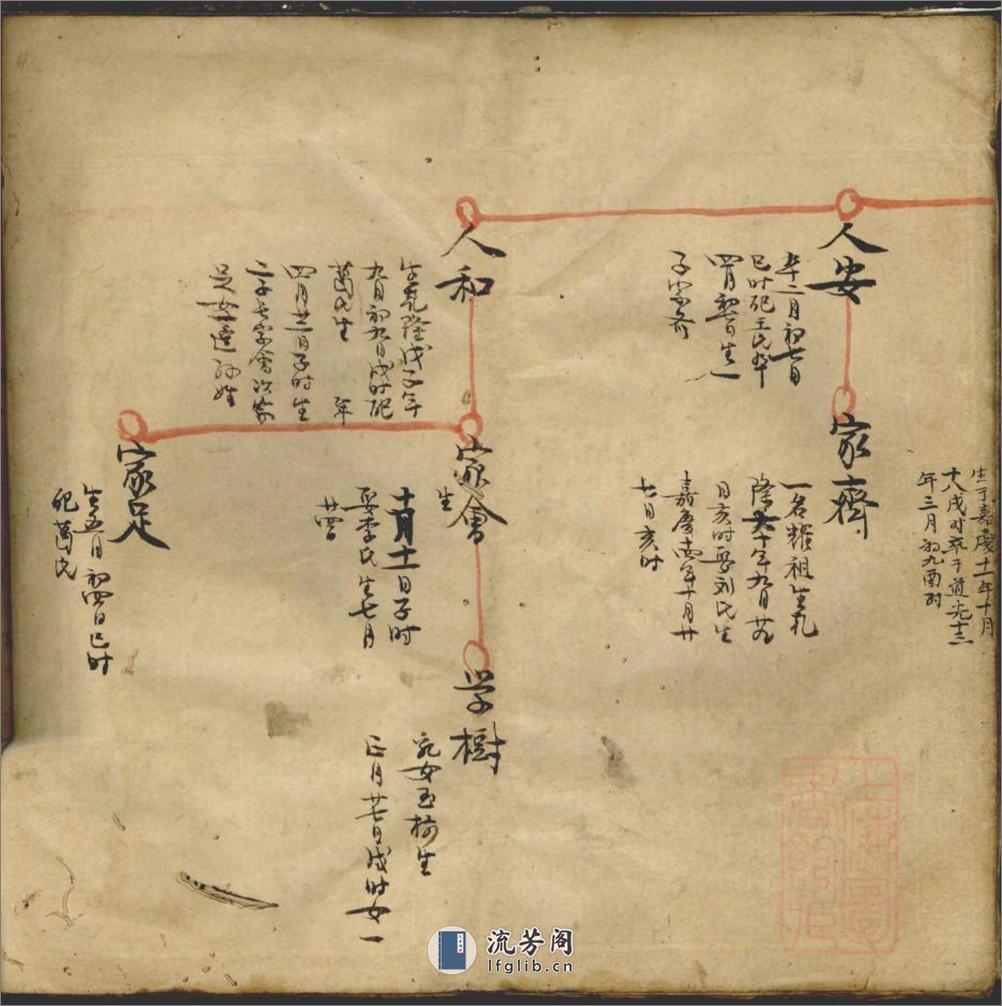 生于嘉慶十一年十月
十八戌时卒于道光十三
年三月初九酉时
人安
年二月初七日
巳时配王氏
四月初日生一
子家齐
家齊
一名耀祖生乾
隆六十年九月廿
日亥时娶刘氏生
嘉慶年十月廿
七日亥时
人和
生乾隆戊子年
九月初九日戌时配
葛氏生 年
四月廿一日子时生
二子长家會次家
足女一适孙姓
家會
生
十月十一日子时
娶李氏生七月
廿四
学樹
元女玉梅生
正月廿七日戌时女一
家足
生五月初四日巳时
配葛氏
上海圖
書館藏
流芳阁
lfglib.cn